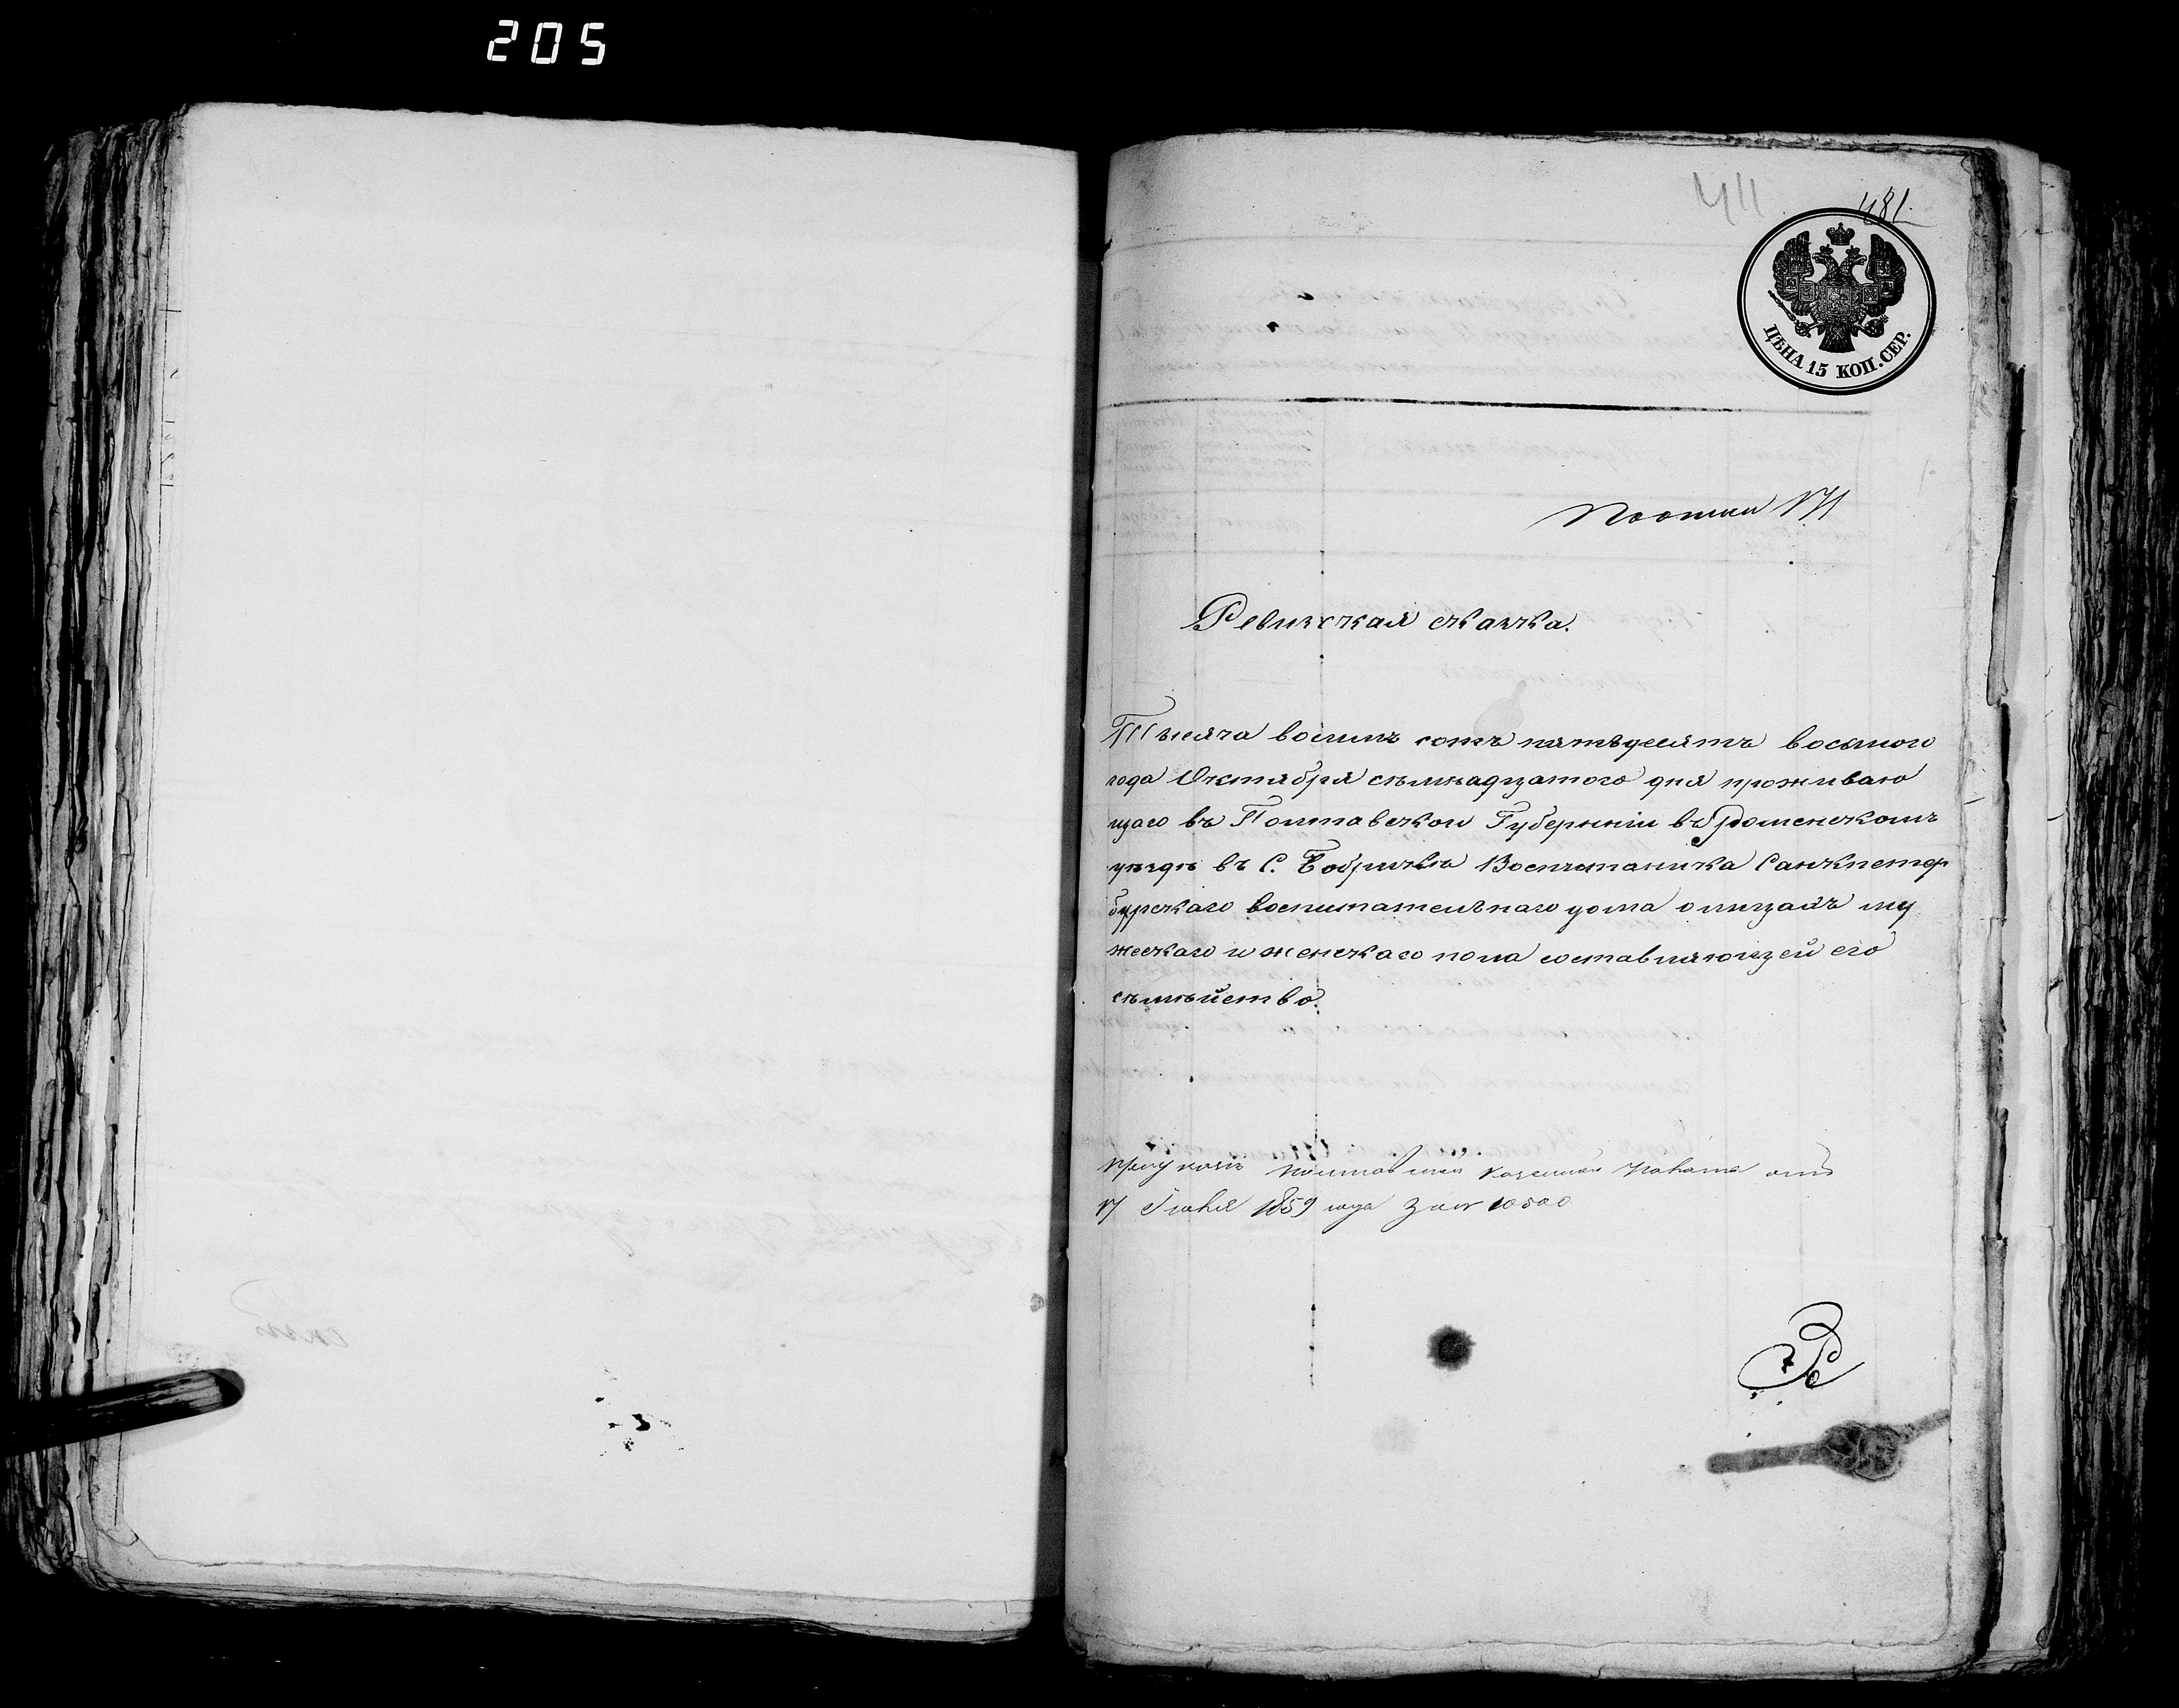 205
411
481.
ЦѢНА 15 КОП. СЕР.
Ревизская сказка.
Тысяча восимъ сотъ пятьдесятъ восьмого
года Октября съмнадцатого дня проживаю
щаго въ Полтавской Губерніи въ Роменскомъ
уѣздѣ въ С. Бобрикѣ Воспитаника Санкпетер
бурскаго воспитательнаго дома о лицахъ му
жескаго и женскаго пола составляющей его
съмѣйство.
Полтавской Казенной Палаты отъ
17 Іюня 1859 года за № 10500